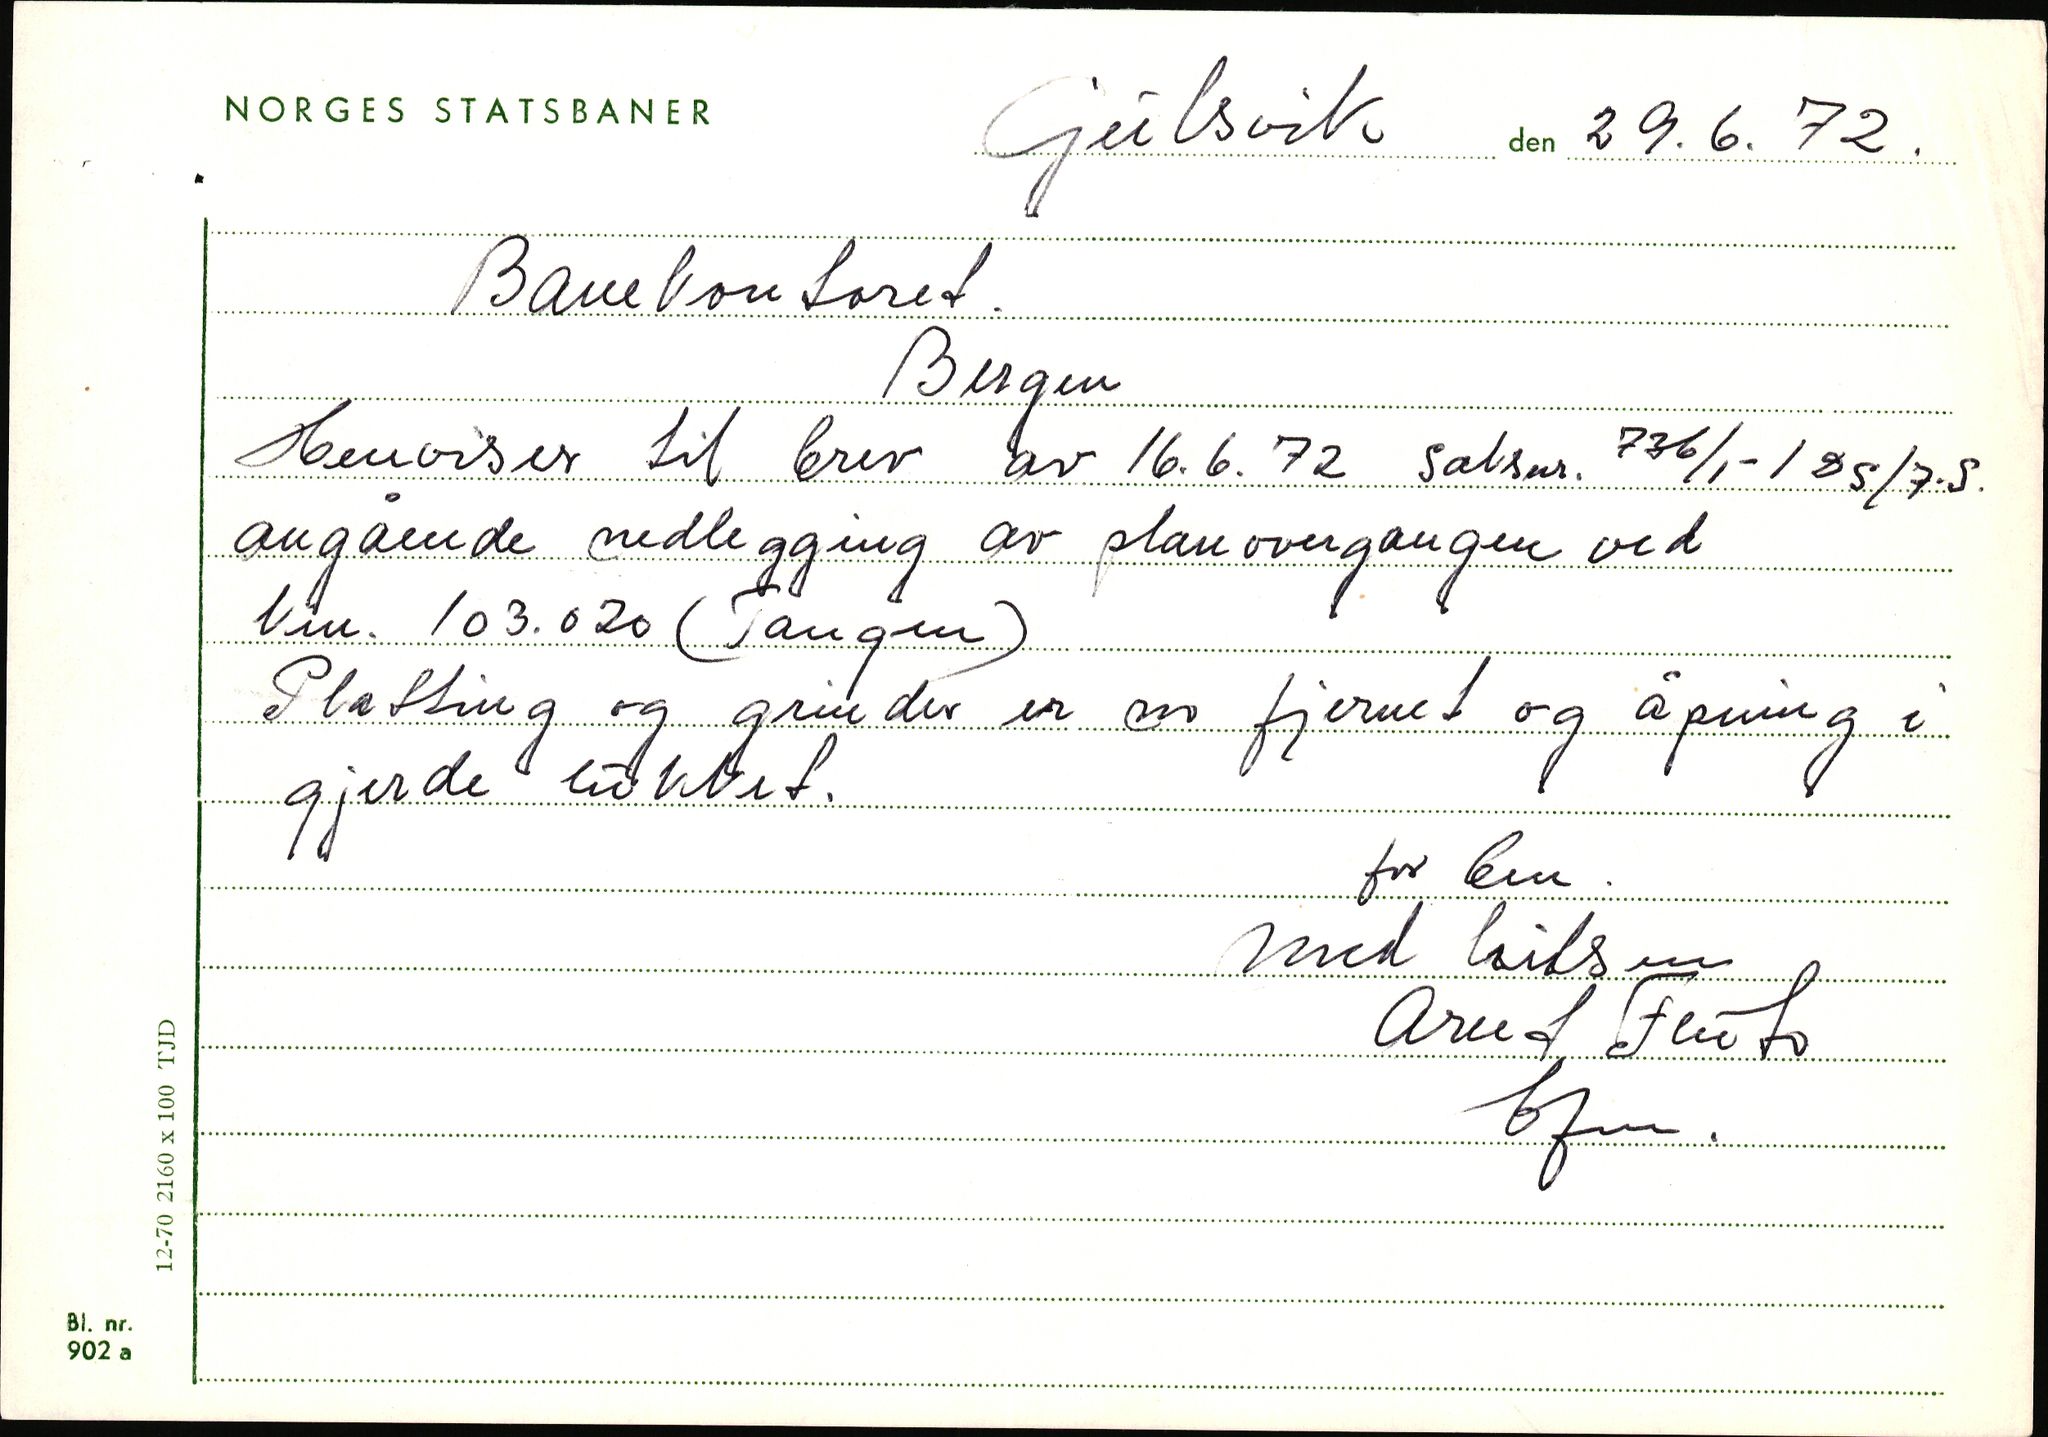 NORGES STATSBANER
Gulsvik den 29.6.72.
Banekontoret.
Bergen
Henviser til brev av 16.6.72 saksnr. 736/1-1 DS/7.S.
angående nedlegging av planovergangen ved
km. 103.020 (Tangen)
Platting og grinder er no fjernet og åpning i
gjerde lukket.
for bm.
med hilsen
Arnt
bfm.
12-70 2160 x 100 TJD
Bl. nr.
902 a